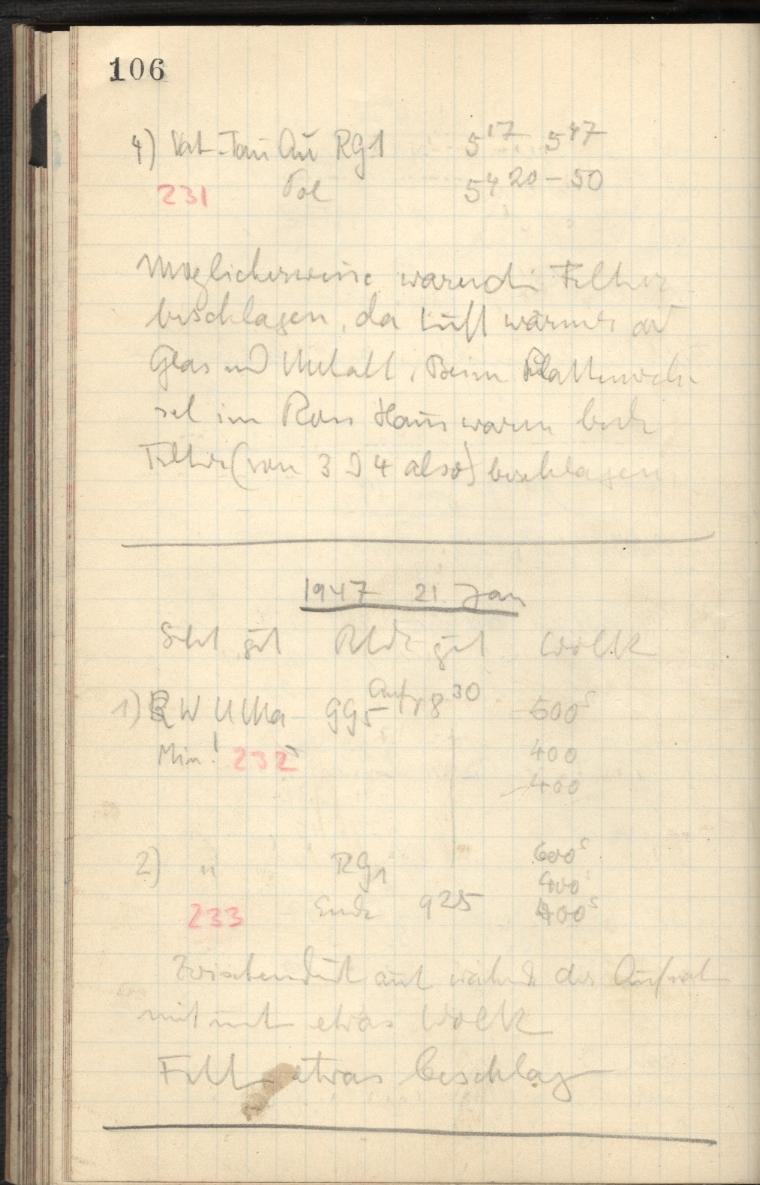 106
4) RG1 5 17 5 47
231 Pol 5 4 20 – 50
Möglicherweise waren die Filter
beschlagen, da Luft wärmer als
Glas und Metall. Beim Plattenwech
sel im Haus waren beide
Filter (von 3 4 also) beschlagen
1947 21. Jan
gut gut Wolk
1) W UMa GG5 Anf 8 30 500s
Min! 232 400
400
2) " RG1 600s
400
233 Ende 9 25 400s
der Aufnah
mit etwas Wolk
Filter etwas Beschlag